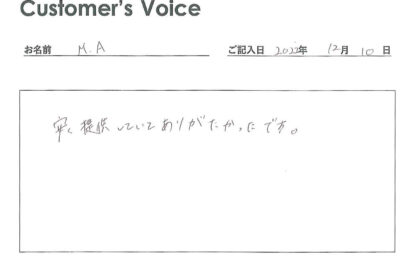 Customer's Voice
お名前 M.A ご記入日 2022年 12月 10日
提供していてありがたかったです。